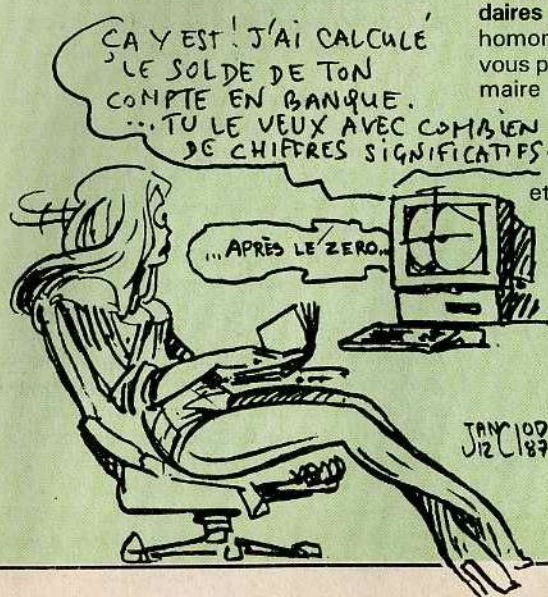 daires
homor
vous p
maire
et
ÇA Y EST ! J'AI CALCULÉ
LE SOLDE DE TON
COMPTE EN BANQUE.
...TU LE VEUX AVEC COMBIEN
DE CHIFFRES SIGNIFICATIFS
...APRÈS LE ZERO...
JANCLOD
12 87